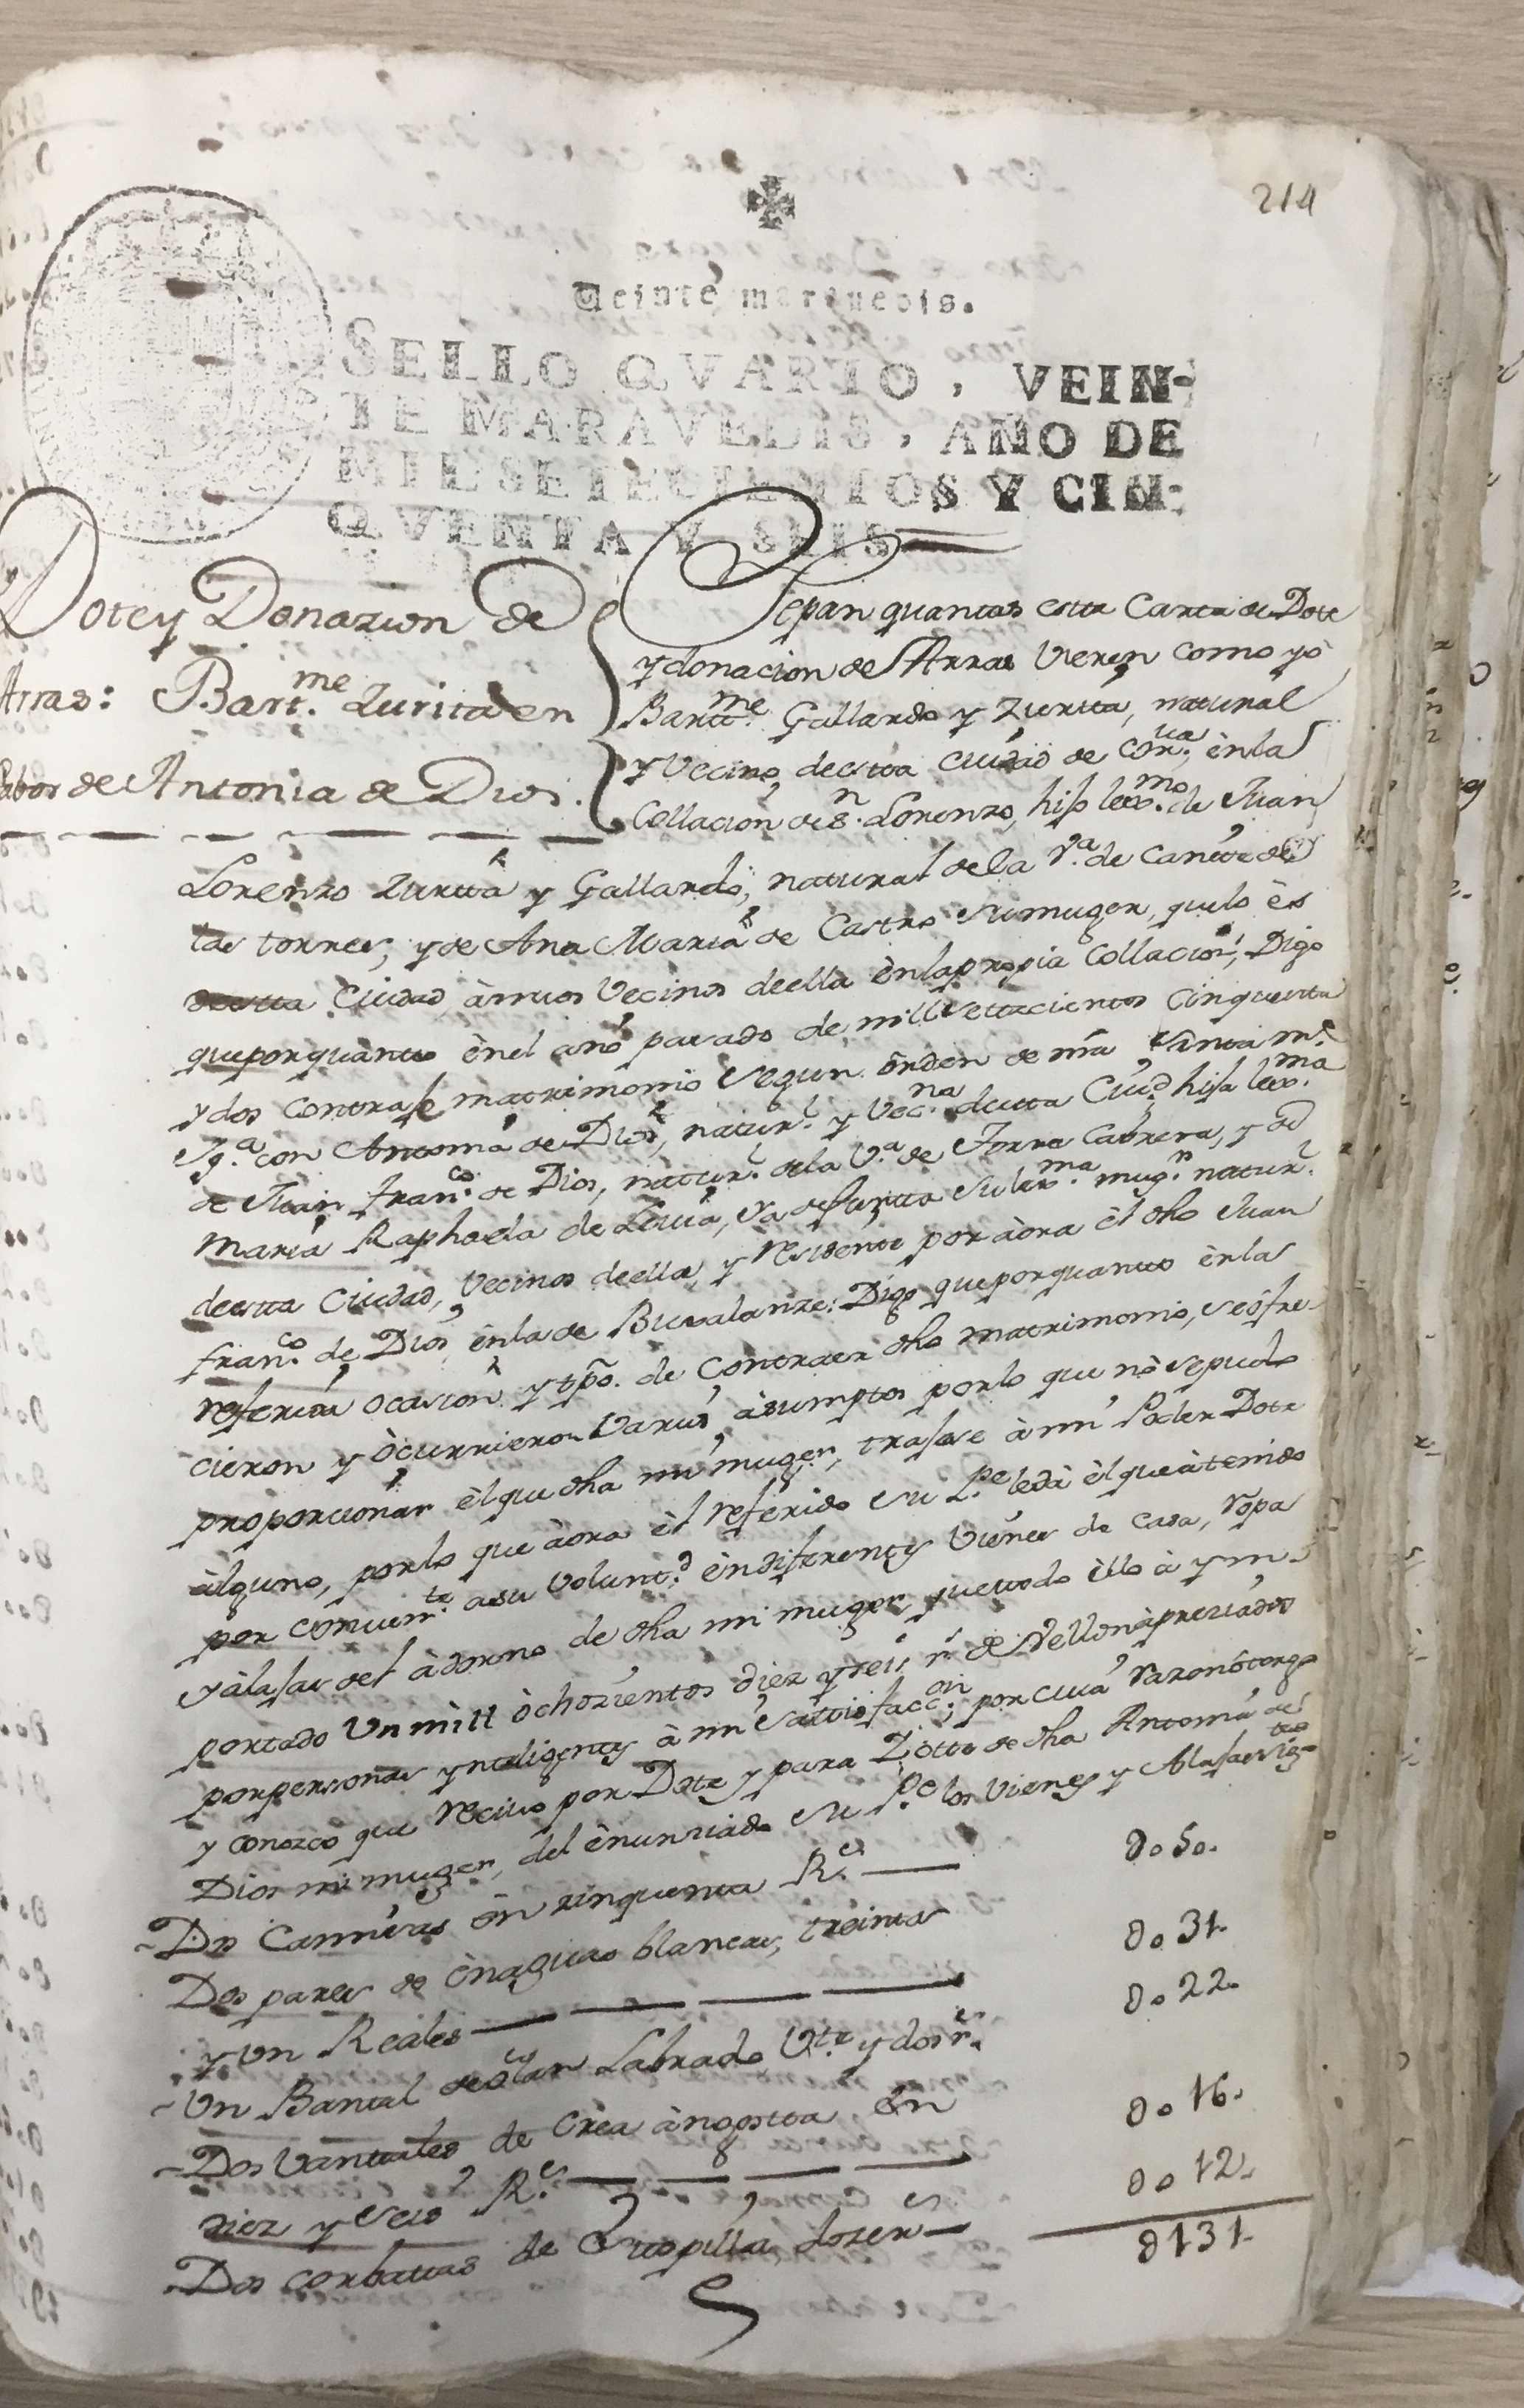 214
Veinte maravedis.
SELLO QVARTO, VEIN-
TE MARAVEDIS, AÑO DE
MIL SETECIENTOS Y CIN-
QVENTA Y SEIS
Dote y Donazion de
Arras: Bart.me Zurita en
fabor de Antonia de Dios.
Sepan quantos esta Carta de Dote
y donacion de Arras Veren como yò
Bartt.me Gallardo y Zurita, natural
y Vecino, de esta Ciudad de Cor.ua, èn la
Collacion de S.n Lorenzo, hijo lexmo. de Juan
Lorenzo Zurita y Gallardo, natural de la V.a de Cañete de
las torres, y de Ana Maria de Castro su muger, que lo ès
de esta Ciudad, àmvos Vecinos de ella èn la propia Collacion, Digo
que por quanto èn el año pasado de mill settecientos cinquenta
y dos Contraje matrimonio segun órden de nrã Santa M.e
Yg.a con Antonia de Dios, natur.l y Vec.na de esta Ciud. hija lex.ma
de Juan Fran.co de Dios, natur.l de la V.a de Torre Cabrera, y de
Maria Raphaela de Leiva, ya defunta su lex.ma mug.r natur.l
de esta Ciudad, Vecinos de ella, y residente por àora èl dho Juan
Fran.co de Dios, èn la de Buxalanze: Digo que por quanto èn la
referida ocasion y tpo. de Contraer dho matrimonio, se òfre-
cieron y òcurrieron Varios àsumptos por lo que nò se pudo
proporcionar èl que dha mi muger, trajese à mi Poder Dote
àlguno, por lo que àora èl referido su P.e le dà èl que à tenido
por conuen.te a su Volunt.d èn diferentes Vienes de Casa, ropa
y àlajas del àdorno de dha mi muger, que todo èllo à ym-
portado Un mill òchozientos diez y seis r.s de Vellon àpreziados
por personas ynteligentes à mi satisfacc.on, por cuia razon ótorgo
y conozco que reciuo por Dote y para Dote de dha Antonia de
Dios mi muger, del ènunziado su P.e los Vienes y Alajas sig.tes
Dos Camisas èn zinquenta R.s — 0o50.
Dos pares de ènaguas blancas, treinta
y un Reales — 0o31.
Un Bantal de olan Labrado V.te y dos r.s 0o22.
Dos Vantales de Crea àngosta èn
diez y Seis R.s — 0o16.
Dos corbattas de Trapilla dozer.s — 0o12.
0131.